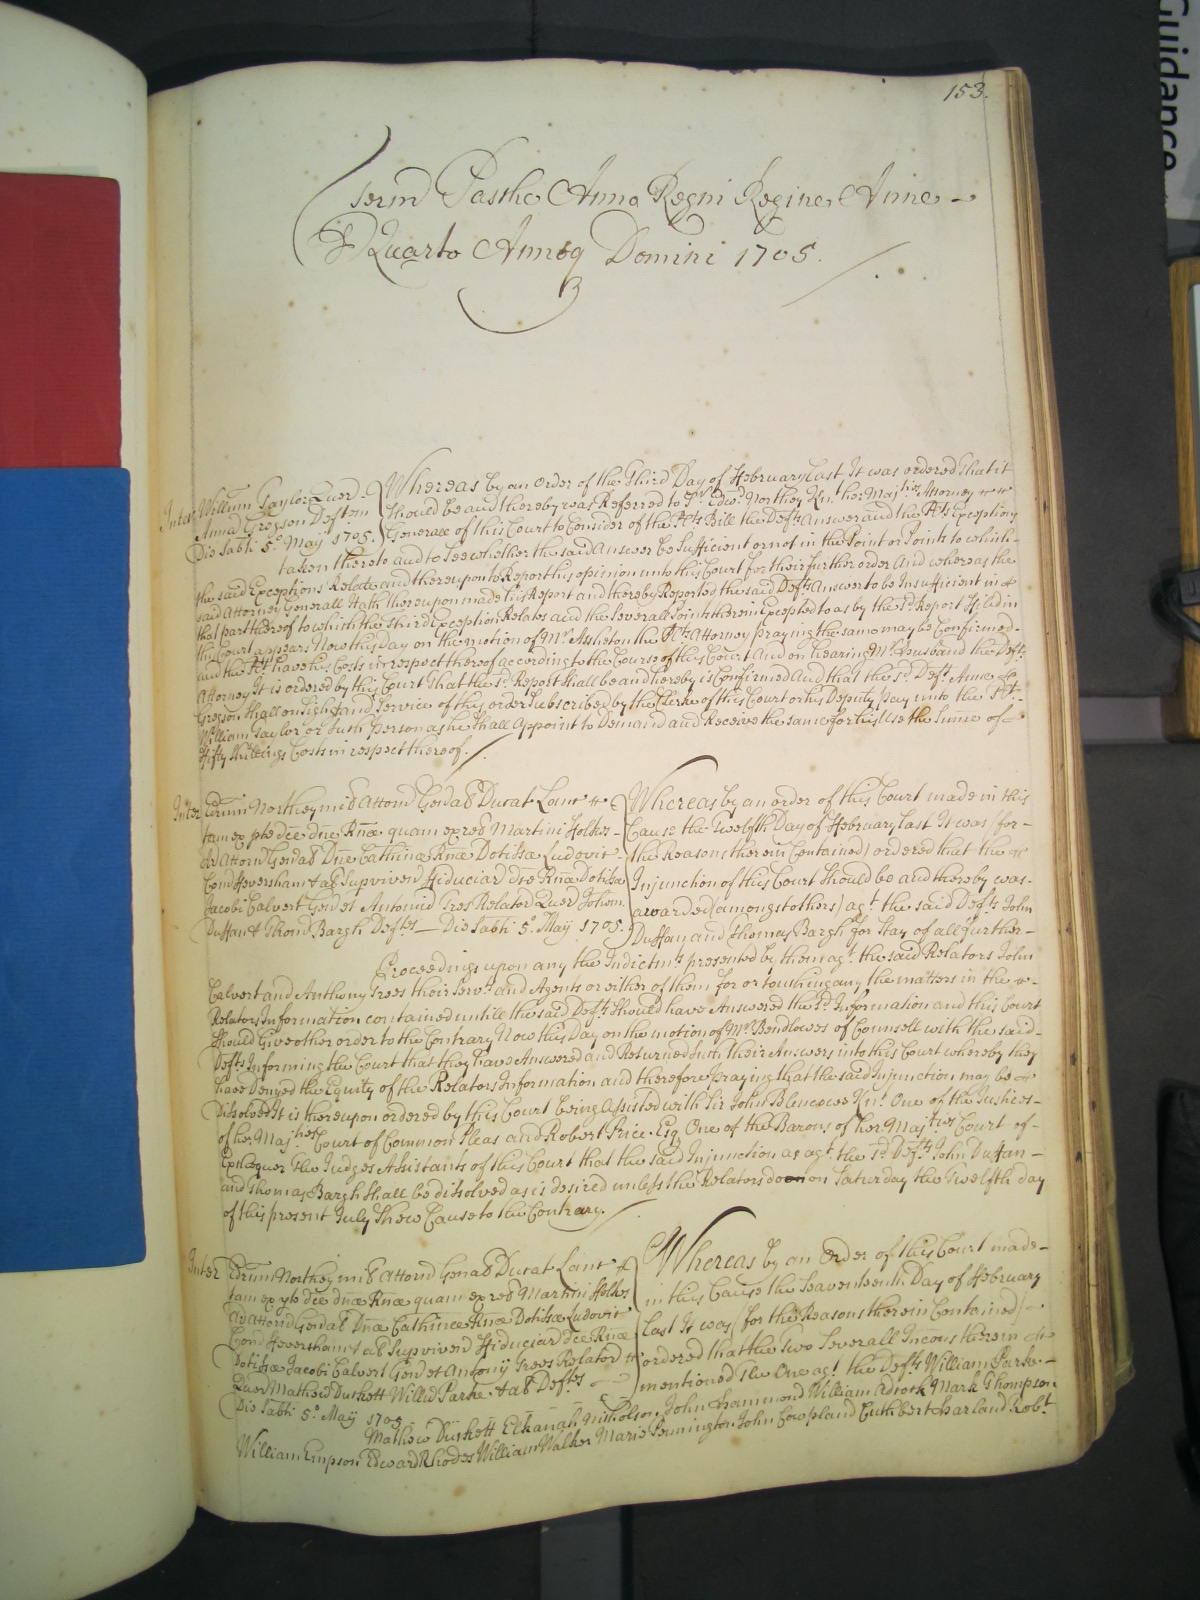 Guidance
153.
Term Pasche Anno Regni Regine Anne
Quarto Annoq Domini 1705.
Inter William Taylor Quer
Anna Gregson Deftem
Die Sabti 5o May 1705.
Whereas by an Order of the Third Day of February last It was ordered that it
should be and thereby was Referred to Sr. Edwd. Northey Knt. her Majties Attorney
Generall of this Court to Consider of the Plts Bill the Defts Answer and the Plts Exceptions
taken thereto and to see whether the said Answer be Sufficient or not in the Point or Points to which
the said Exceptions Relate and thereupon to Report his opinion unto this Court for their further order And whereas the
said Attorney Generall Hath thereupon made his Report and thereby Reported the said Defts Answer to be Insufficient in
that part thereof to which the third Exception Relates and the severall Points therein Excepted to as by the sd. Report Filed in
this Court appears Now this Day on the motion of Mr. Assheton the Plts Attorney praying the same may be Confirmed
and the Plt. have his Costs in respect thereof according to the Course of this Court And on hearing Mr. Husband the Defts
Attorney It is ordered by this Court That the sd. Report shall be and hereby is Confirmed And that the sd. Deft. Anne
Gregson shall on sight and Service of this order Subscribed by the Clerke of this Court or his Deputy pay unto the Plt.
William Taylor or such Person as he shall appoint to Demand and Receive the same for his Use the Summe of
Fifty Shillings Costs in respect thereof.
Inter Edrum Northey mil Attorn Genal Ducat Lanc
tam ex pte dce dne Rnæ quam ex rel Martini Folkes
Ar Attorn Genal Dne Cathinæ Rnæ Dotissæ Ludovic
Com Feversham & al Supviven Fiduciar dce Rnæ Dotissæ
Jacobi Calvert Gen et Antonii Trees Relator Quer Johem
Duffan & Thom Bargh Deftes Die Sabti 5o May 1705.
Whereas by an order of this Court made in this
Cause the Twelfth Day of February last It was (for
the Reasons therein Contained) ordered that the
Injunction of this Court should be and thereby was
awarded (amongst others) agt. the said Defts John
Duffan and Thomas Bargh for Stay of all further
Proceedings upon any the Indictmts presented by them agt. the said Relators John
Calvert and Anthony Trees their Servts and Agents or either of them for or touching any the matters in the
Relators Information contained untill the said Defts should have Answered the sd. Information and this Court
should Give other order to the Contrary Now this Day on the motion of Mr. Bendlowes of Counsell with the said
Defts Informing the Court that they have Answered and Returned such their Answers into this Court whereby they
have Denyed the Equity of the Relators Information and therefore praying that the said Injunction may be
Dissolved It is thereupon ordered by this Court being Assisted with Sir John Blencowe Knt. One of the Justices
of her Majties Court of Common Pleas and Robert Price Esq One of the Barons of her Majties Court of
Exchequer The Judges Assistants of this Court that the said Injunction as agt. the sd. Defts John Duffan
and Thomas Bargh shall be disolved as is desired unless the Relators do on Saturday the Twelfth day
of this present July Shew Cause to the Contrary.
Inter Edrum Northey mil Attorn Genal Ducat Lanc
tam ex pte dce dnæ Rnæ quam ex rel Martini Folkes
Ar Attorn Genal Dnæ Cathinæ Rnæ Dotissæ Ludovic
Com Feversham & al Supviven Fiduciar dce Rnæ
Dotissæ Jacobi Calvert Gen et Antonij Trees Relator
Quer Mathew Duckett Willm Parke & al Deftes
Die Sabti 5o May 1705
Whereas by an Order of this Court made
in this Cause the Seaventeenth Day of February
last It was (for the Reasons therein Contained)
ordered that the two severall Injons therein
mentioned The One agt. the Defts William Parke
Mathew Duckett Elkanah Nicholson John Hammond William Adcock Mark Thompson
William Empson Edward Rhodes William Walker Marie Pennington John Cowpland Cuthbert Harland Robt.